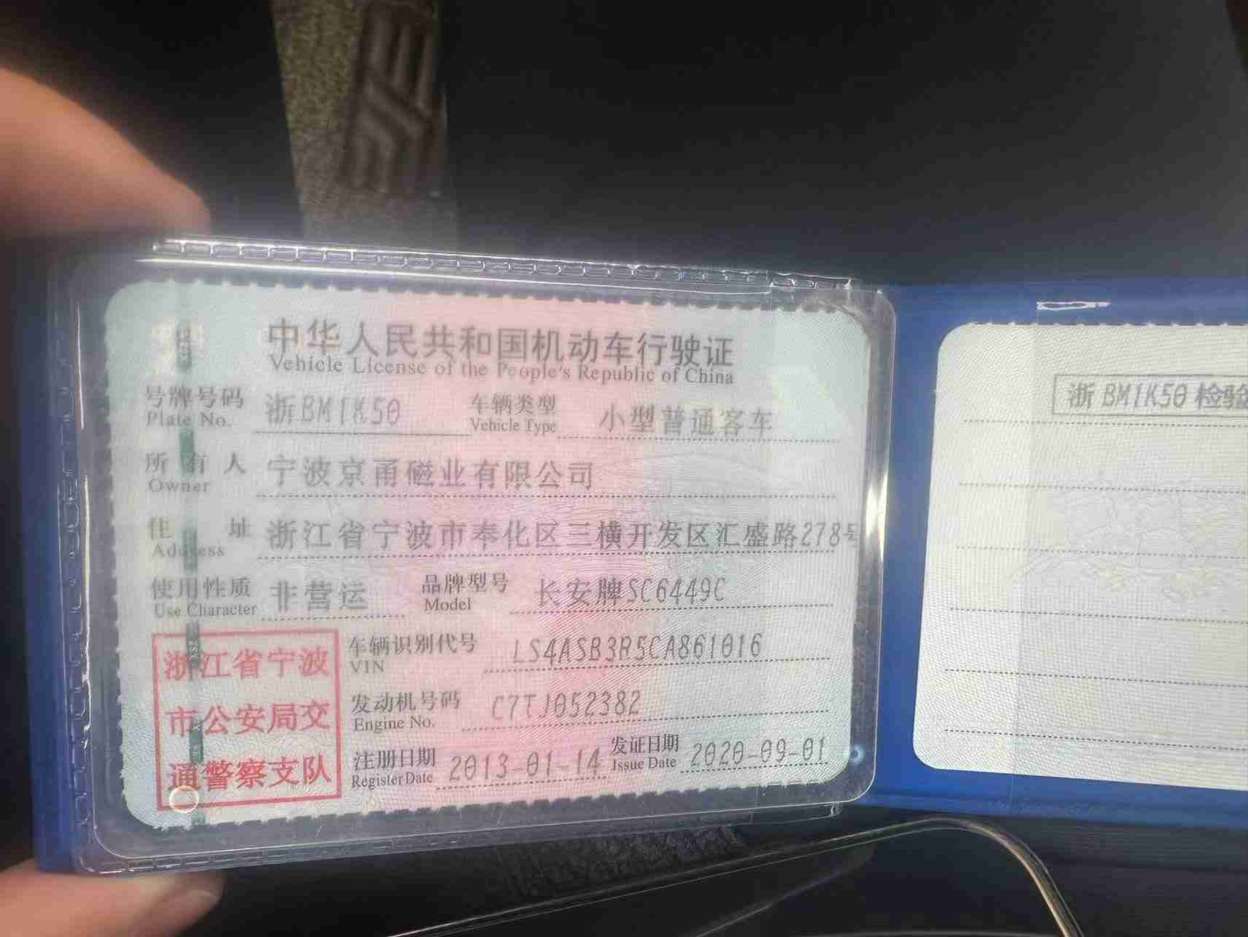 中华人民共和国机动车行驶证
Vehicle License of the People's Republic of China
号牌号码 浙BM1K50 车辆类型 小型普通客车
Plate No. Vehicle Type
所有人 宁波京甬磁业有限公司
Owner
住址 浙江省宁波市奉化区三横开发区汇盛路278号
Address
使用性质 非营运 品牌型号 长安牌SC6449C
Use Character Model
浙江省宁波
市公安局交
通警察支队
车辆识别代号 LS4ASB3R5CA861016
VIN
发动机号码 C7TJ052382
Engine No.
注册日期 2013-01-14 发证日期 2020-09-01
Register Date Issue Date
浙BM1K50 检验